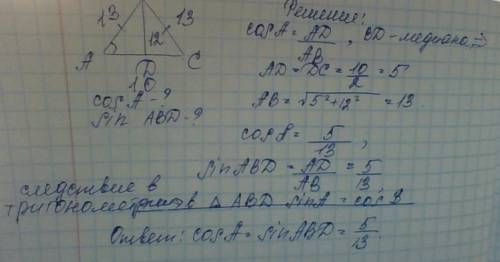 13
13
12
A
C
D
10
cos A - ?
sin ABD - ?
Решение:
cos A = AD/AB, BD - медиана ⇒
AD = DC = 10/2 = 5
AB = √5²+12² = 13.
cos B = 5/13,
sin ABD = AD/AB = 5/13
следствие в
тригонометрии в Δ ABD sin A = cos B
Ответ: cos A = sin ABD = 5/13.